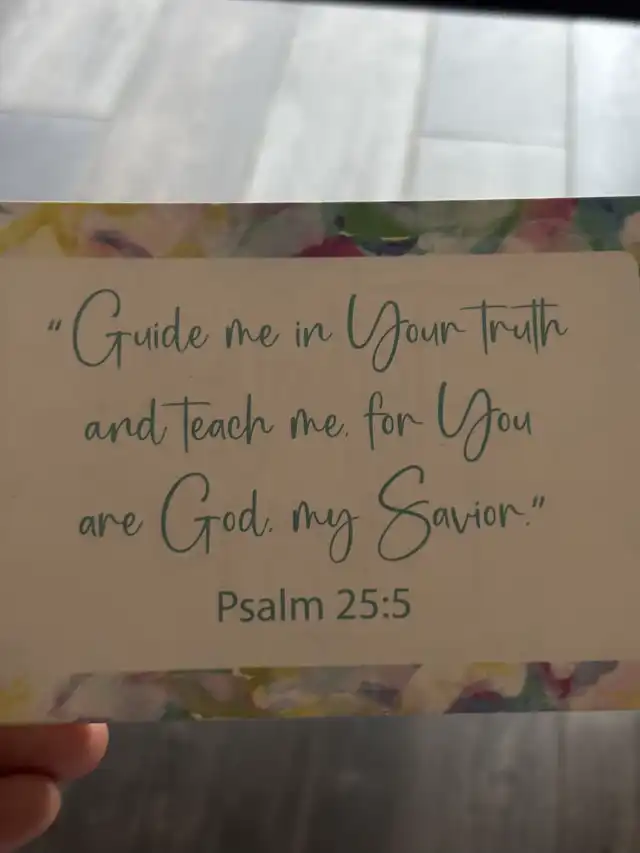 "Guide me in Your truth
and teach me, for You
are God, my Savior."
Psalm 25:5